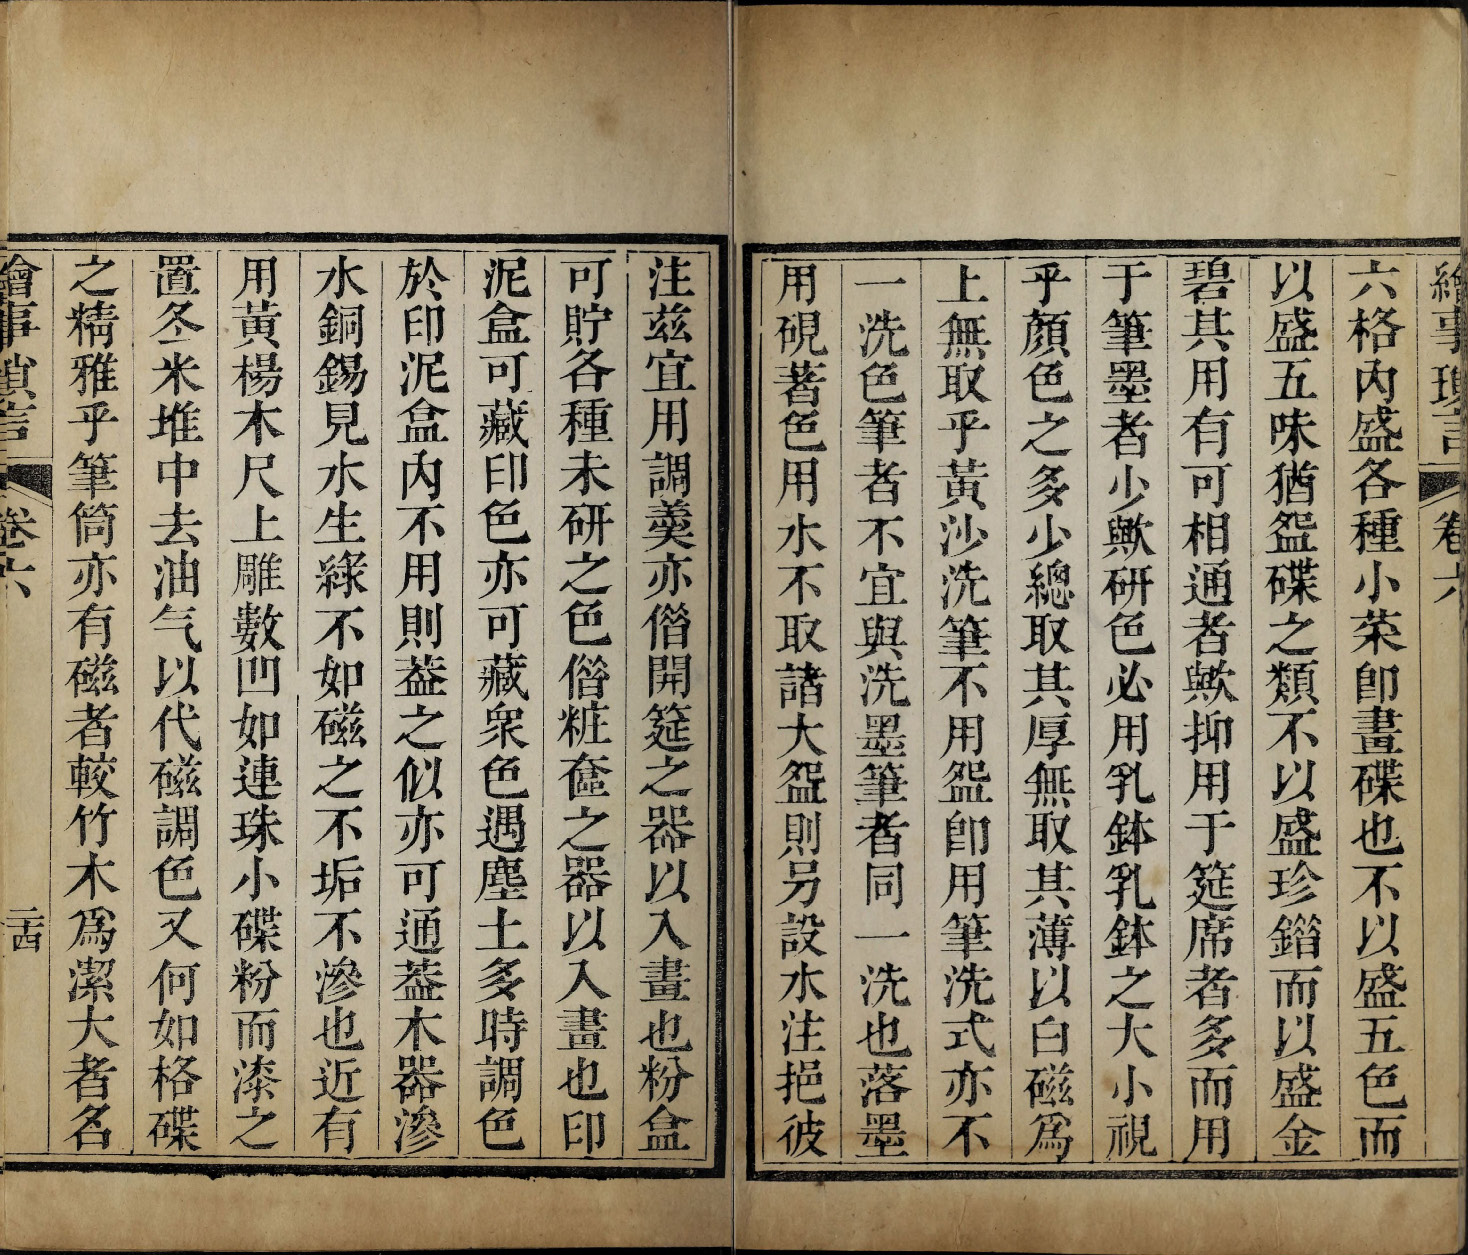 繪事瑣言 卷六
六格內盛各種小菜卽畫碟也不以盛五色而
以盛五味猶盌碟之類不以盛珍錯而以盛金
碧其用有可相通者歟抑用于筵席者多而用
于筆墨者少歟研色必用乳鉢乳鉢之大小視
乎顏色之多少總取其厚無取其薄以白磁爲
上無取乎黃沙洗筆不用盌卽用筆洗式亦不
一洗色筆者不宜與洗墨筆者同一洗也落墨
用硯著色用水不取諸大盌則另設水注挹彼
注茲宜用調羹亦僭開筵之器以入畫也粉盒
可貯各種未研之色僭粧奩之器以入畫也印
泥盒可藏印色亦可藏衆色遇塵土多時調色
於印泥盒內不用則葢之似亦可通葢木器滲
水銅錫見水生綠不如磁之不垢不滲也近有
用黃楊木尺上雕數凹如連珠小碟粉而漆之
置冬米堆中去油气以代磁調色又何如格碟
之精雅乎筆筒亦有磁者較竹木爲潔大者名
繪事瑣言 卷六 二十四